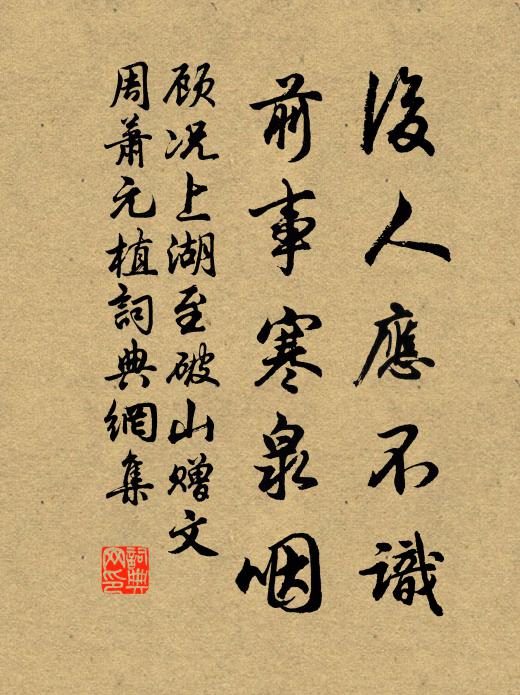 後人應不識
前事寒泉咽
顾况上湖至破山赠文
周萧元植詞典網集
詞典网印